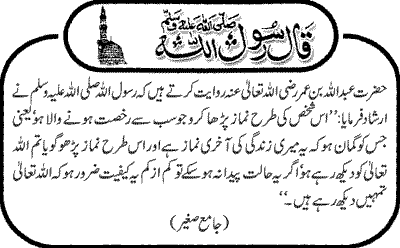 قال رسول اللہ صلی اللہ علیہ وسلم
حضرت عبداللہ بن عمر رضی اللہ تعالیٰ عنہ روایت کرتے ہیں کہ رسول اللہ صلی اللہ علیہ وسلم نے
ارشاد فرمایا: ’’اس شخص کی طرح نماز پڑھا کرو جو سب سے رخصت ہونے والا ہو‘ یعنی
جس کو گمان ہو کہ یہ میری زندگی کی آخری نماز ہے اور اس طرح نماز پڑھو گویا تم اللہ
تعالیٰ کو دیکھ رہے ہو‘ اگر یہ حالت پیدا نہ ہو سکے تو کم از کم یہ کیفیت ضرور ہو کہ اللہ تعالیٰ
تمہیں دیکھ رہے ہیں۔‘‘
(جامع صغیر)